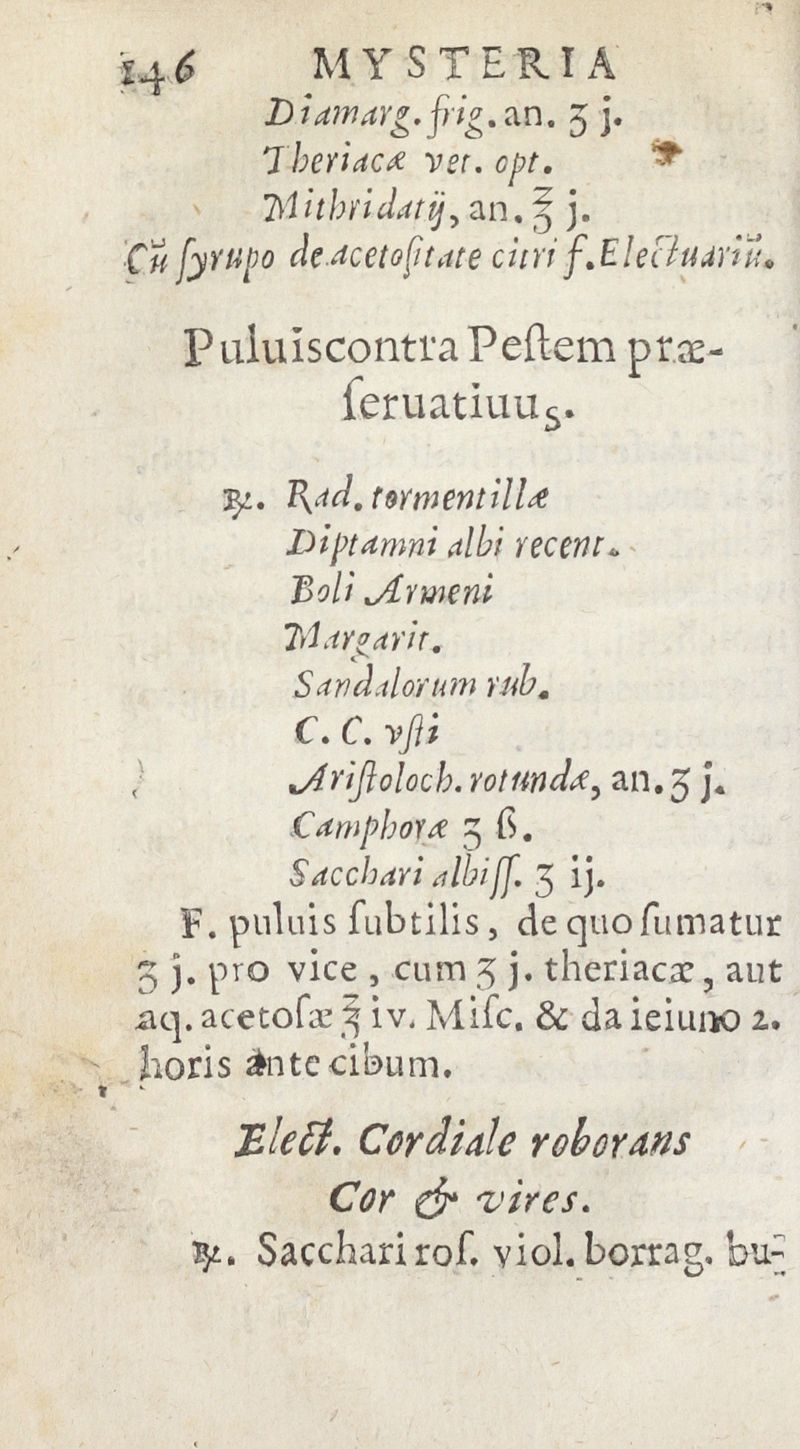 146 MYSTERIA
Diamarg. frig. an. ʒ j.
Theriacæ vet. opt.
Mithridatij, an. ℥ j.
Cū ſyrupo de acetoſitate citri f. Electuariū.
Puluis contra Peſtem præ-
ſeruatiuus.
℞. Rad. tormentillæ
Diptamni albi recent.
Boli Armeni
Margarit.
Sandalorum rub.
C. C. vſti
Ariſtoloch. rotundæ, an. ʒ j.
Camphoræ ʒ ß.
Sacchari albiſſ. ʒ ij.
F. puluis ſubtilis, de quo ſumatur
ʒ j. pro vice, cum ʒ j. theriacæ, aut
aq. acetoſæ ℥ iv. Miſc. & da ieiuno 2.
horis ante cibum.
Elect. Cordiale roborans
Cor & vires.
℞. Sacchari roſ. viol. borrag. bu-